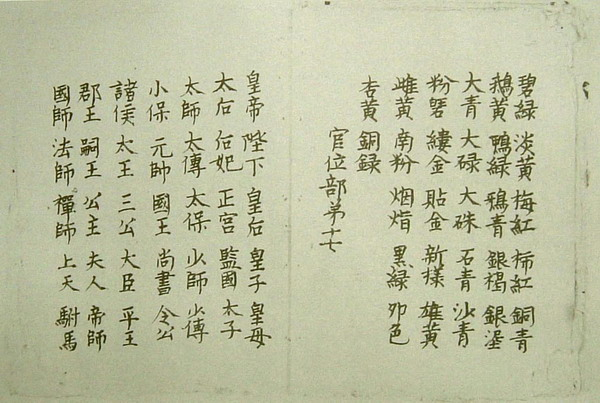 碧緑 淡黄 梅紅 柿紅 銅青
鵝黄 鴨緑 鴉青 銀褐 銀埿
大青 大碌 大硃 石青 沙青
粉碧 縷金 貼金 新樣 雄黄
雌黄 南粉 烟脂 黑緑 卯色
杏黄 銅緑
官位部第十七
皇帝 陛下 皇后 皇子 皇母
太后 后妃 正宫 監國 太子
太師 太傅 太保 少師 少傅
少保 元帥 國王 尚書 令公
諸侯 太王 三公 大臣 平王
郡王 嗣王 公主 夫人 帝師
國師 法師 禪師 上天 駙馬